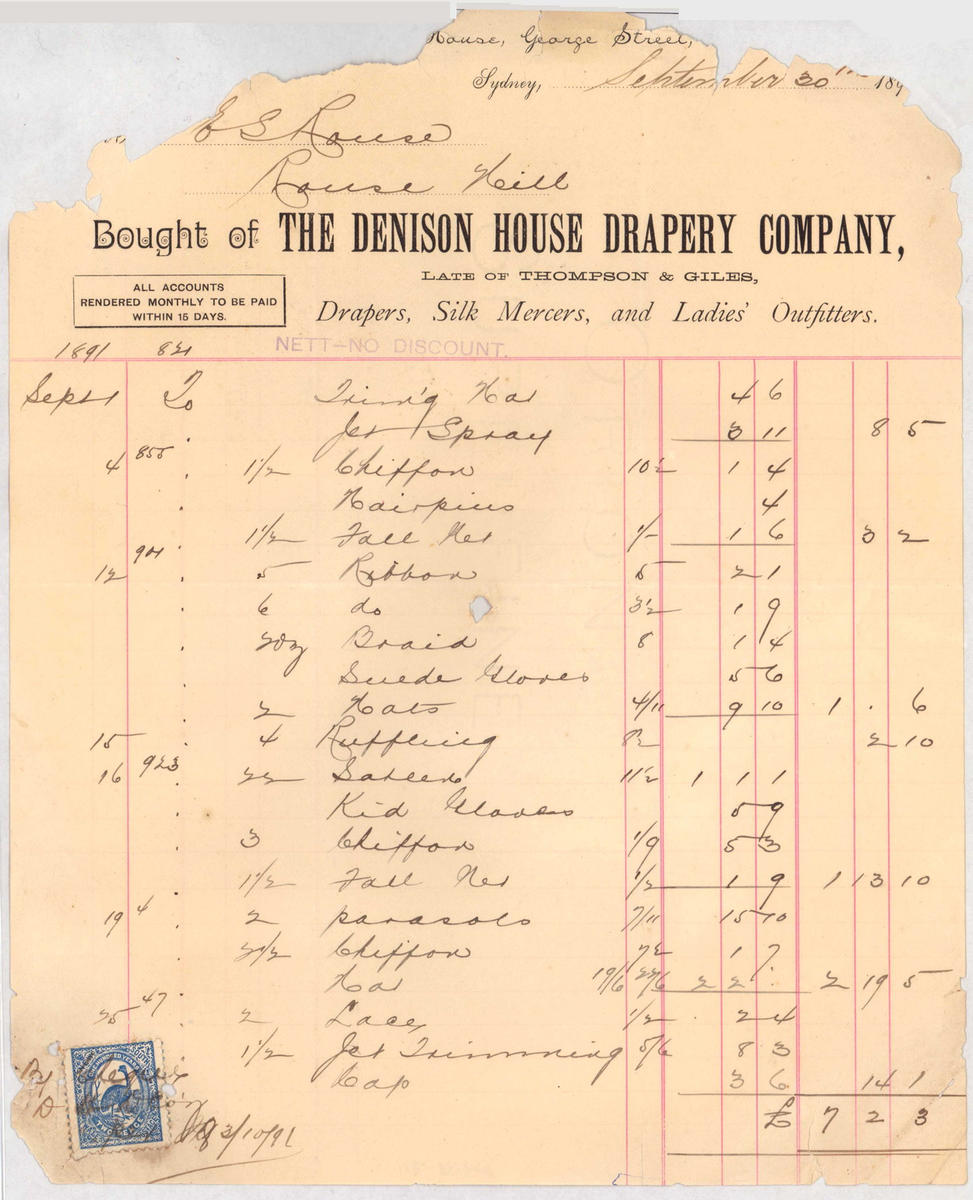 House, George Street,
Sydney, September 30th 189
E S Rouse
Rouse Hill
Bought of THE DENISON HOUSE DRAPERY COMPANY,
LATE OF THOMPSON & GILES,
ALL ACCOUNTS
RENDERED MONTHLY TO BE PAID
WITHIN 15 DAYS.
Drapers, Silk Mercers, and Ladies' Outfitters.
1891 821 NETT—NO DISCOUNT.
Sept 1 To Trim'g Hat 4 6
Jet Spray 3 11 8 5
4 855 1 1/2 Chiffon 10 1/2 1 4
Hairpins 4
1 1/2 Fall Net 1/- 1 6 3 2
12 901 5 Ribbon 5 2 1
6 do 3 1/2 1 9
2 doz Braid 8 1 4
Suede Gloves 5 6
2 Hats 4/11 9 10 1 . 6
15 4 Ruffling 8 1/2 2 10
16 923 22 Sateen 11 1/2 1 1 1
Kid Gloves 5 9
3 Chiffon 1/9 5 3
1 1/2 Fall Net 1/2 1 9 1 13 10
19 4 2 parasols 7/11 15 10
2 1/2 Chiffon 7 1/2 1 7
Hat 19/6 22/6 2 2 . 2 19 5
25 47 2 Lace 1/2 . 2 4
1 1/2 Jet Trimming 5/6 8 3
Cap 3 6 14 1
£ 7 2 3
ONE HUNDRED YEARS
TWO PENCE
3/10/91